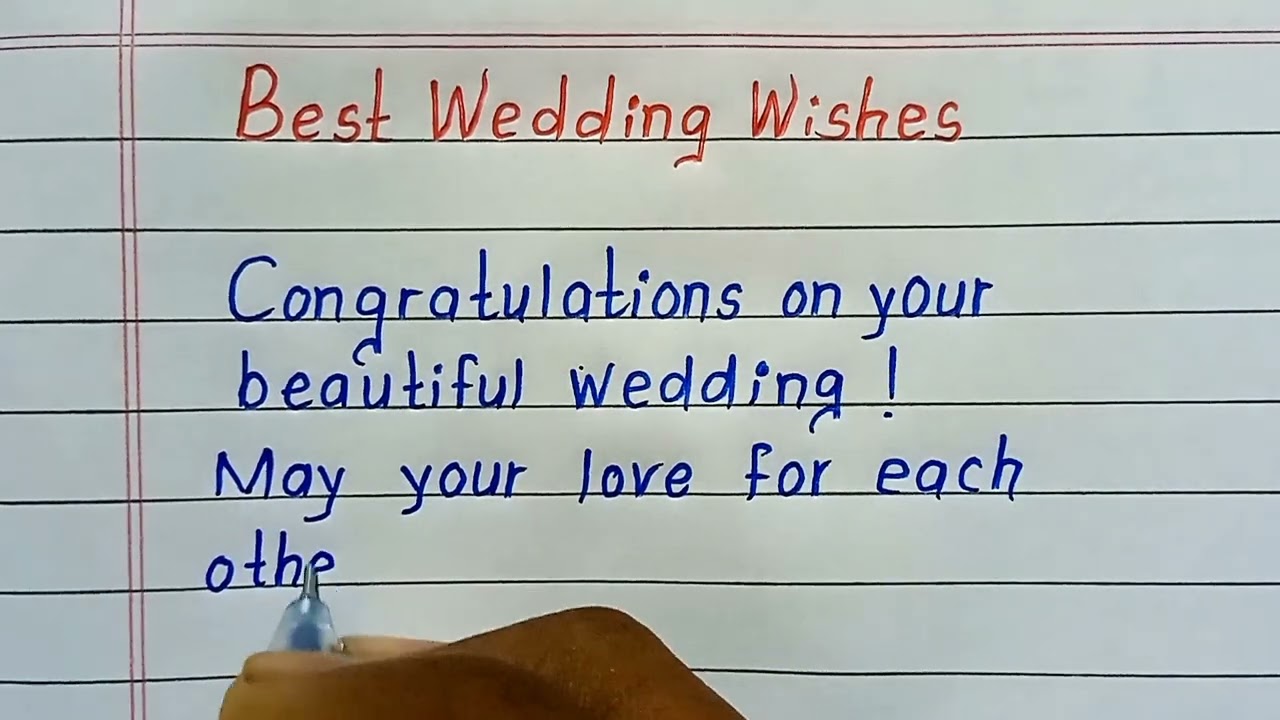 Best Wedding Wishes
Congratulations on your
beautiful wedding !
May your love for each
othe